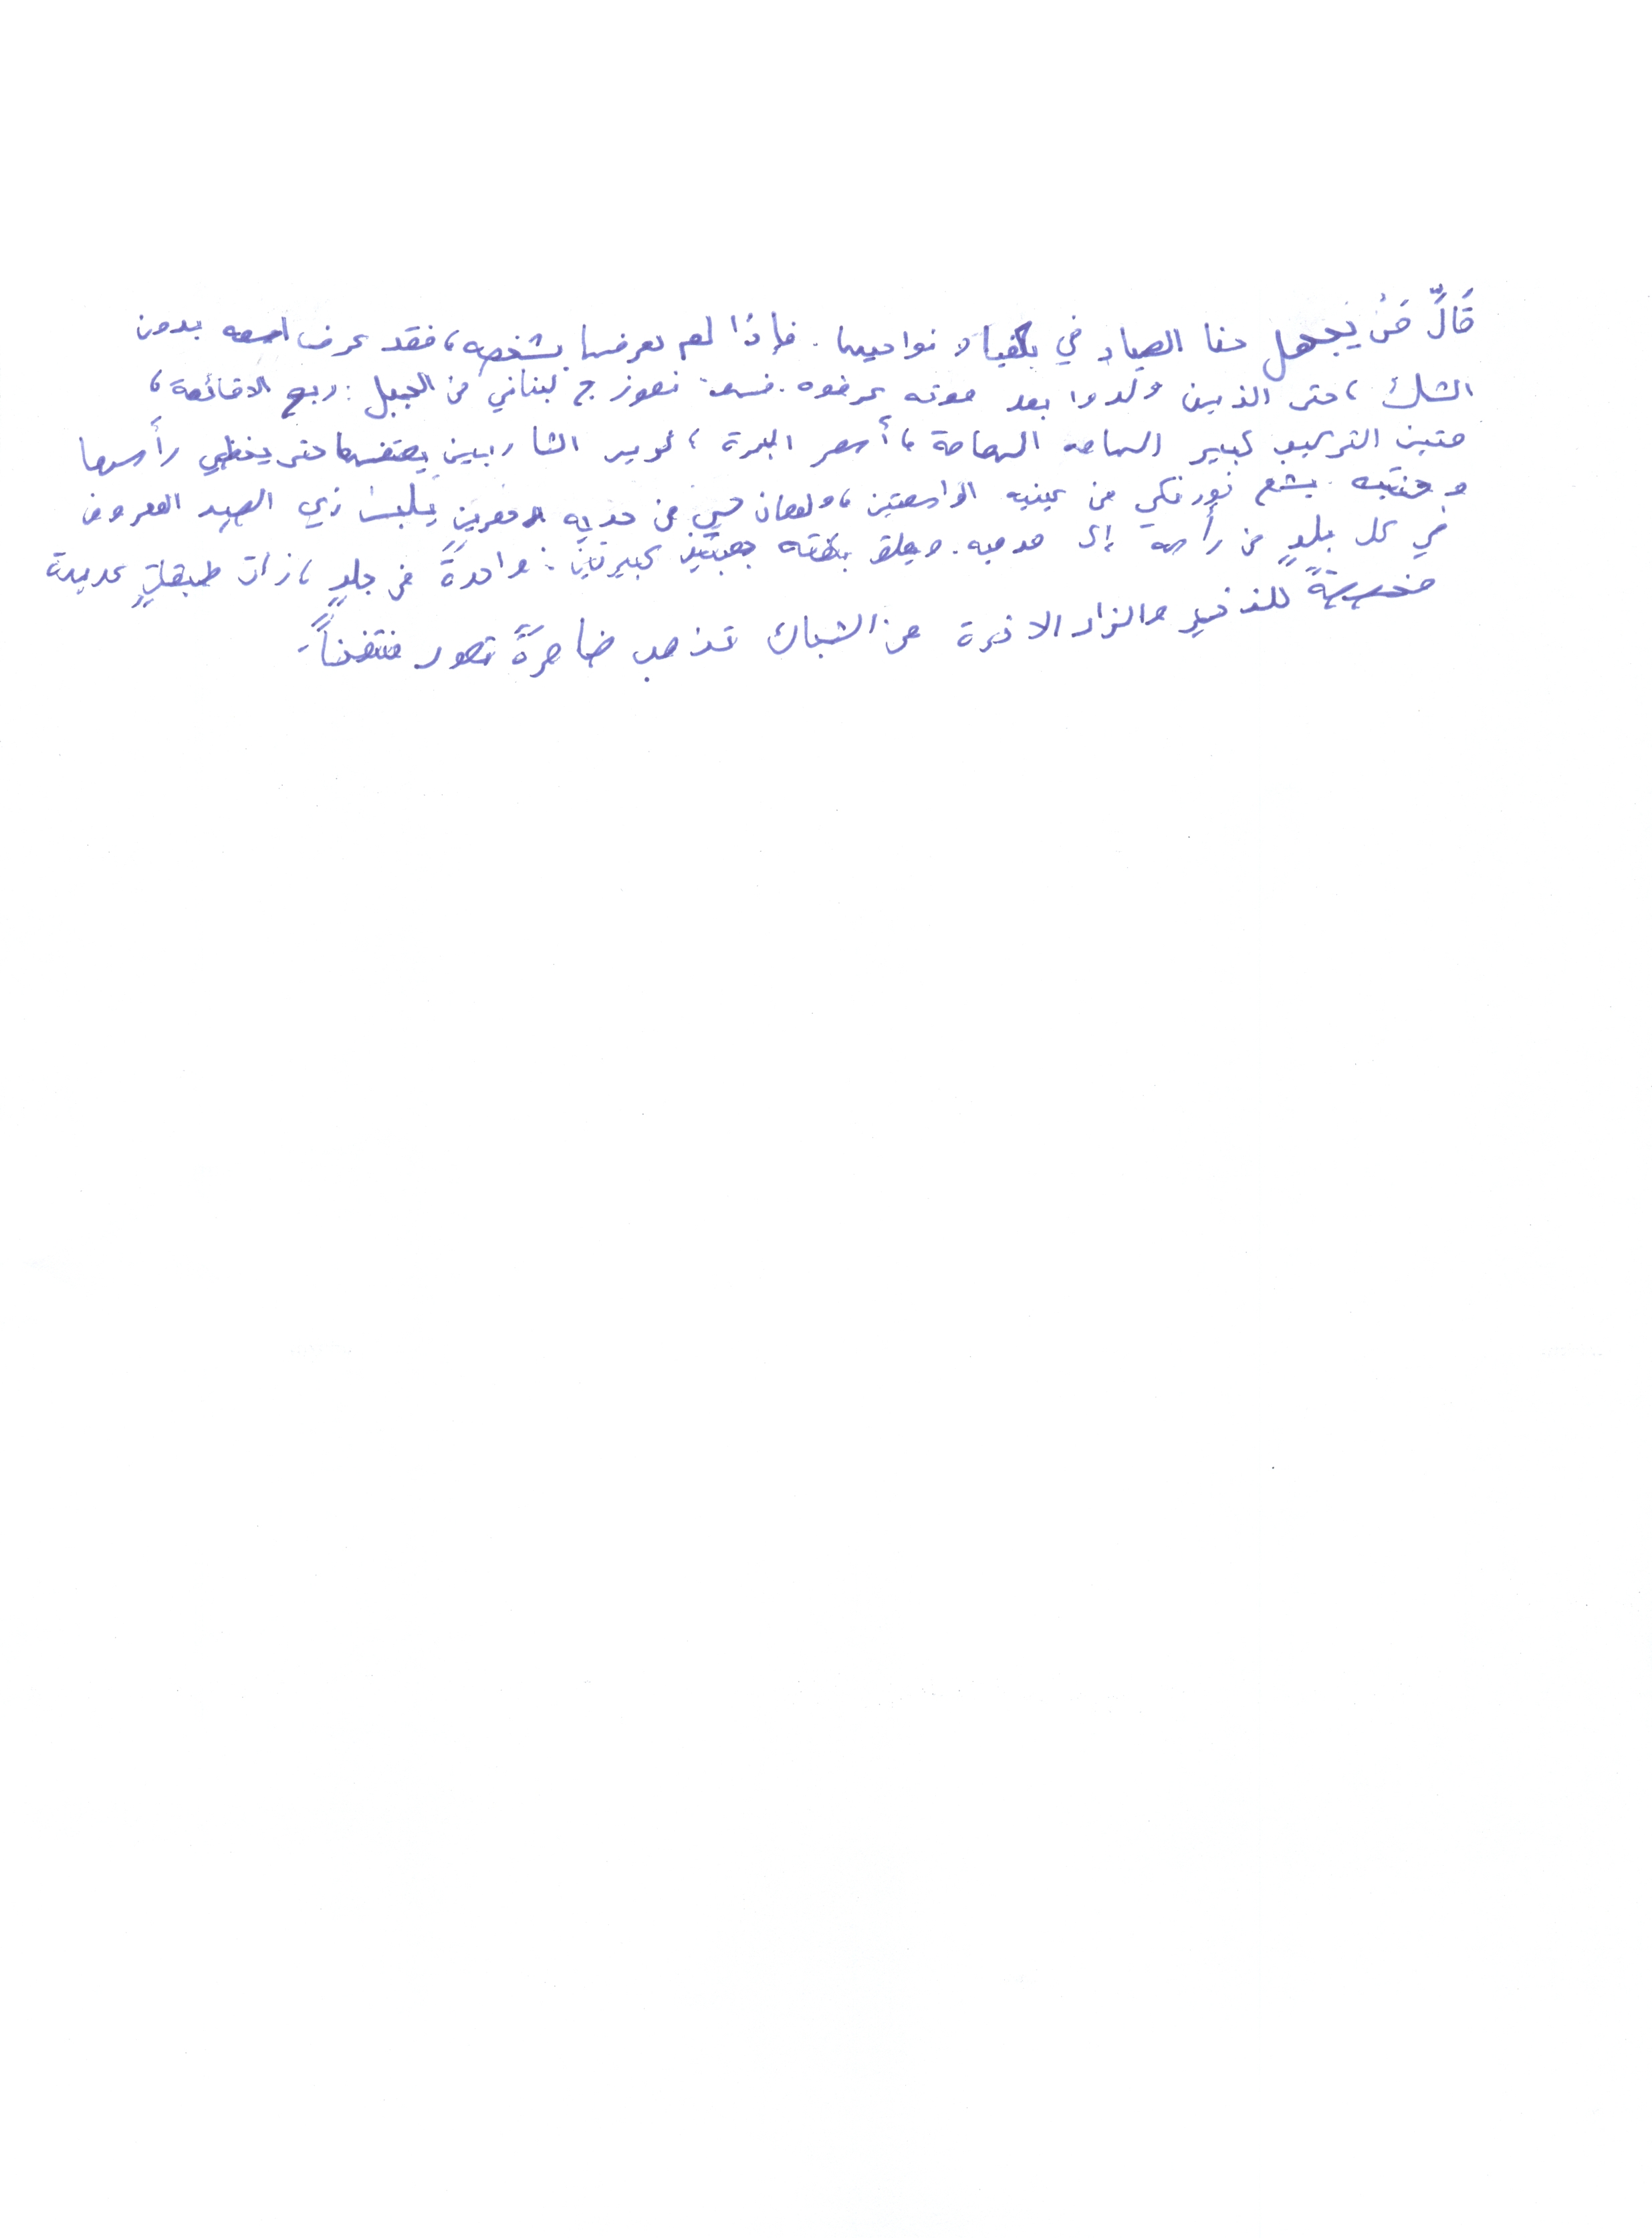 قَالَّ مَنْ يَجهل حنا الصياد في بكفيا و نواحيها . فإذا لم تعرفها بشخصه، فقد عرف اسمه بدون
الشك ، حتى الذين ولدوا بعد موته عرفوه . نموزج لبناني من الجبل : ربع الاقائمة ،
متين التركيب كبير الهامه الهامة ، أسمر البمرة ، الشاربين حتى يغطي رأسهما
وجنتيه . يشع نور ذكي من عينيه الواسعتين ، ولمعان من خديه يلبسُ زي الصيد المعروف
في كل بلدٍ من رأسه إلى قدميه . ويعلق بكتفه جعبتين كبيرتين : واحدةً من جلدٍ ، زات طبقاتٍ عديدة
للذخير والزاد الاخرة من الشباك تذهب ضامرةً تعود منتفخاً .